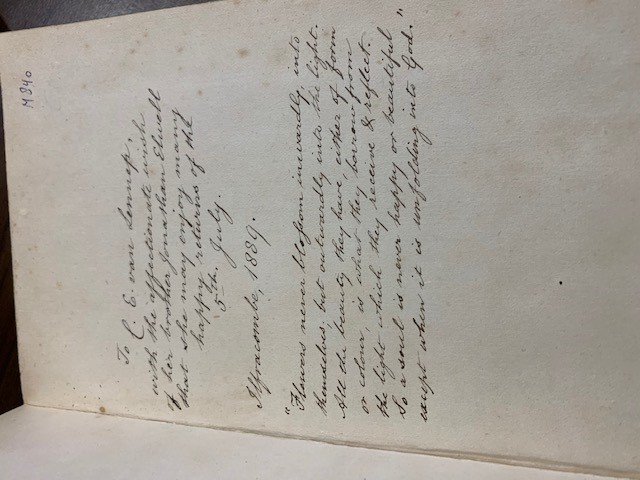 M840
To C. E. van Lennep,
with the affectionate wish
of her brother Jonathan Elwell
that she may enjoy many
happy returns of the
5th July.
Ilfracombe, 1889.
"Flowers never blossom inwardly, into
themselves, but outwardly into the light.
All the beauty they have, either of form
or colour, is what they borrow from
the light which they receive & reflect.
So a soul is never happy or beautiful
except when it is unfolding into God."